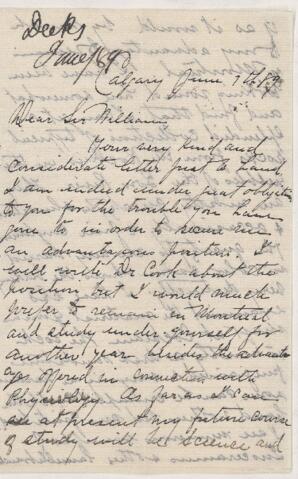 Deeks
June 7/89
Calgary June 7th 89
Dear Sir William
Your very kind and
considerate letter just to hand
I am indeed under great obligation
to you for the trouble you have
gone to in order to secure me
an advantageous position. I
will write Dr Cook about the
position but I would much
prefer to remain in Montreal
and study under yourself for
another year besides the advant
ages offered in connection with
Physiology. As far as I can
see at present my future course
of study will be science and